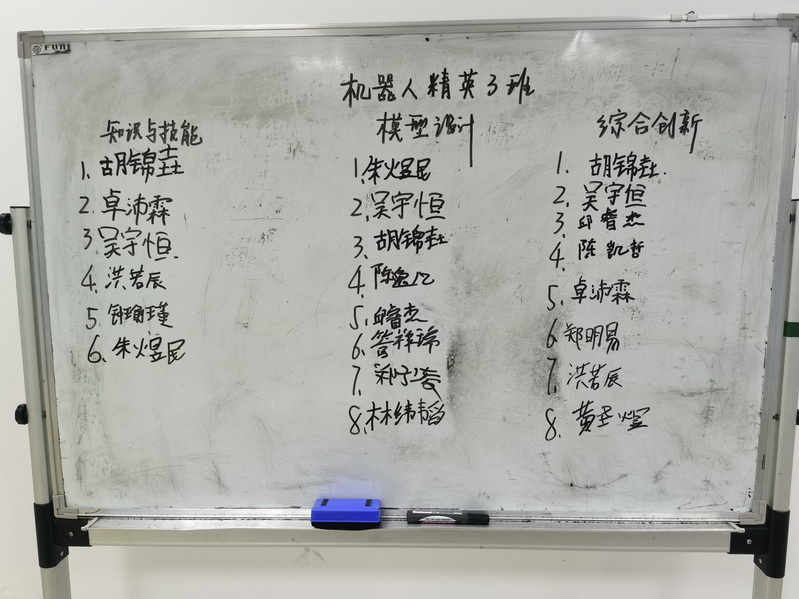 FUNI
机器人精英3班
知识与技能
1.胡锦垚
2.卓沛霖
3.吴宇恒.
4.洪若辰
5.
6.朱煜民
模型设计
1.朱煜民
2.吴宇恒
3.胡锦垚
4.陈
5.邱睿杰
6.答祥玮
7.
8.林纬韬
综合创新
1.胡锦垚.
2.吴宇恒
3.邱睿杰
4.陈凯哲
5.卓沛霖
6.郑明易
7.洪若辰
8.黄圣煊